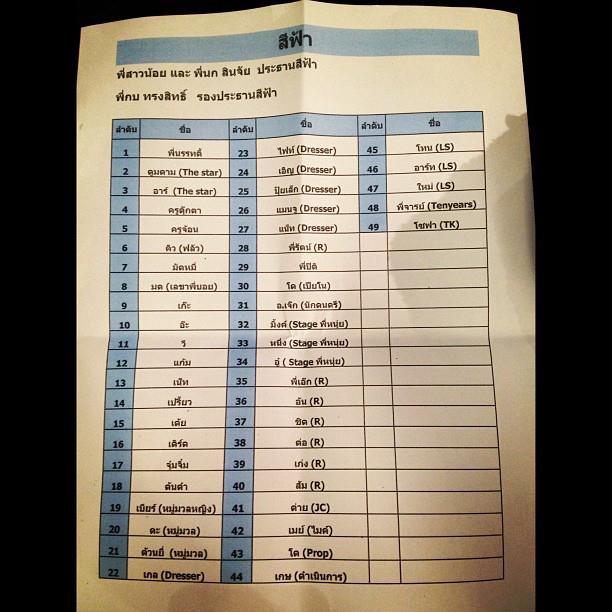 สีฟ้า
พี่สาวน้อย และ พี่นก สินจัย ประธานสีฟ้า
พี่กบ ทรงสิทธิ์ รองประธานสีฟ้า
ลำดับ ชื่อ ลำดับ ชื่อ ลำดับ ชื่อ
1 พี่บรรทดิ์ 23 ไฟท์ (Dresser) 45 โหน (LS)
2 ตูมตาม (The star) 24 เอิญ (Dresser) 46 อาร์ท (LS)
3 อาร์ (The star) 25 ปุ้ยเล็ก (Dresser) 47 ใหม่ (LS)
4 ครูตุ๊กตา 26 แมนจู (Dresser) 48 พี่จารย์ (Tenyears)
5 ครูจ้อน 27 แน๊ท (Dresser) 49 โซฟา (TK)
6 ดิว (ฟลัว) 28 พี่รัตน์ (R)
7 มัดหมี่ 29 พี่ปิติ
8 มด (เลขาพี่บอย) 30 โต (เปียโน)
9 เก๊ะ 31 อ.เจ๊ก (นักดนตรี)
10 อ๊ะ 32 มิ้งค์ (Stage พี่หนุ่ย)
11 วี 33 หนึ่ง (Stage พี่หนุ่ย)
12 แก้ม 34 อู๋ ( Stage พี่หนุ่ย)
13 เน๊ท 35 พี่เอ๊ก (R)
14 เปรี้ยว 36 อ้น (R)
15 เต้ย 37 ชิต (R)
16 เดิร์ด 38 ต่อ (R)
17 จุ่มจิ๋ม 39 เก่ง (R)
18 ต้นคำ 40 ส้ม (R)
19 เบียร์ (หมู่มวลหญิง) 41 ต่าย (JC)
20 ดะ (หมู่มวล) 42 เมย์ (ไมค์)
21 ต้วนยี่ (หมู่มวล) 43 โต (Prop)
22 เกล (Dresser) 44 เกษ (ดำเนินการ)